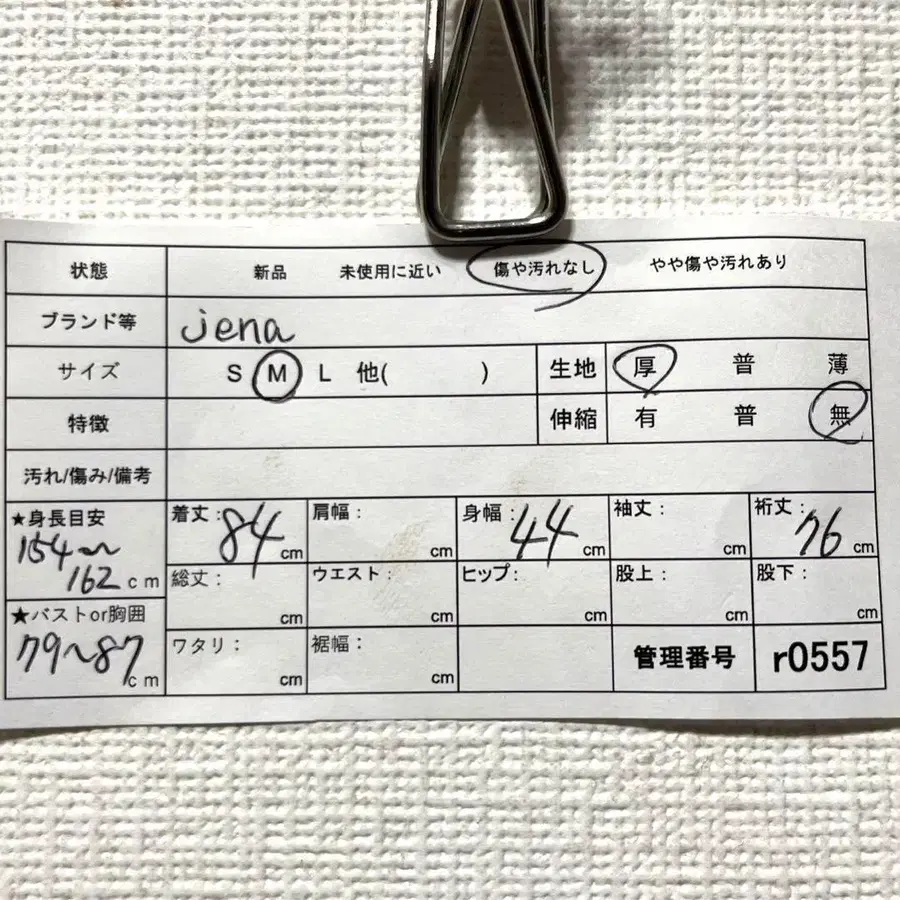 状態 新品 未使用に近い 傷や汚れなし やや傷や汚れあり
ブランド等 jena
サイズ S M L 他( ) 生地 厚 普 薄
特徴 伸縮 有 普 無
汚れ/傷み/備考
★身長目安 154~162cm
着丈:84cm 肩幅: cm 身幅:44cm 袖丈: cm 裄丈:76cm
総丈: cm ウエスト: cm ヒップ: cm 股上: cm 股下: cm
★バストor胸囲 79~87cm
ワタリ: cm 裾幅: cm 管理番号 r0557